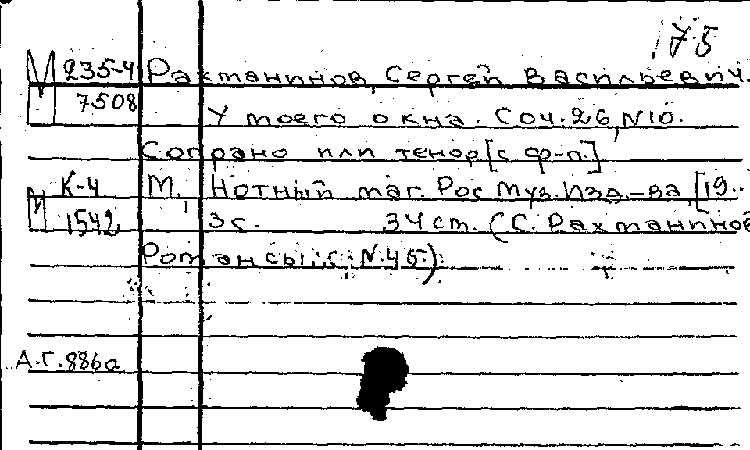 175
М 235-4 Рахманинов, Сергей Васильевич.
7508 У моего окна. Соч. 26, N10.
Сопрано или тенор [с ф-п.]
К-4 М., Нотный маг. Рос. Муз. Изд-ва, [19..
1542 3 с. 34 см. (С. Рахманинов
Романсы: N.45)
А.Г. 886а